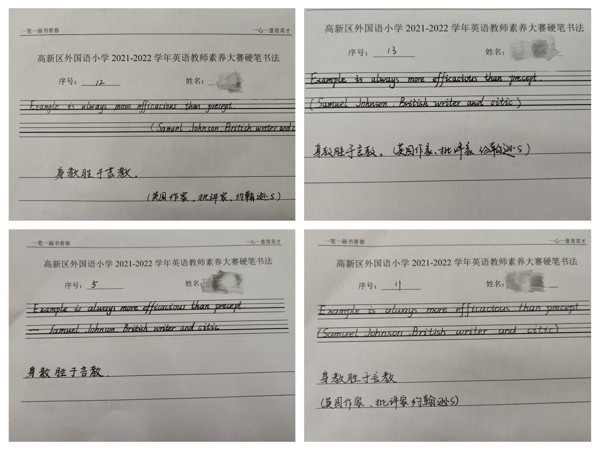 一笔一画书青春 一心一意育英才
高新区外国语小学 2021-2022 学年英语教师素养大赛硬笔书法
序号: 12 姓名:
Example is always more efficacious than precept.
(Samuel Johnson, British writer and
身教胜于言教。
(英国作家、批评家,约翰逊·S)
高新区外国语小学 2021-2022 学年英语教师素养大赛硬笔书法
序号: 13 姓名:
Example is always more efficacious than precept.
(Samuel Johnson, British writer and citic)
身教胜于言教。(英国作家、批评家 约翰逊·S)
一笔一画书青春 一心一意育英才
高新区外国语小学 2021-2022 学年英语教师素养大赛硬笔书法
序号: 5 姓名:
Example is always more efficacious than precept
— Samuel Johnson, British writer and citic
身教胜于言教.
一笔一画书青春 一心一意育英才
高新区外国语小学 2021-2022 学年英语教师素养大赛硬笔书法
序号: 11 姓名:
Example is always more efficacious than precept
(Samuel Johnson, British writer and citic)
身教胜于言教
(英国作家、批评家约翰逊S)